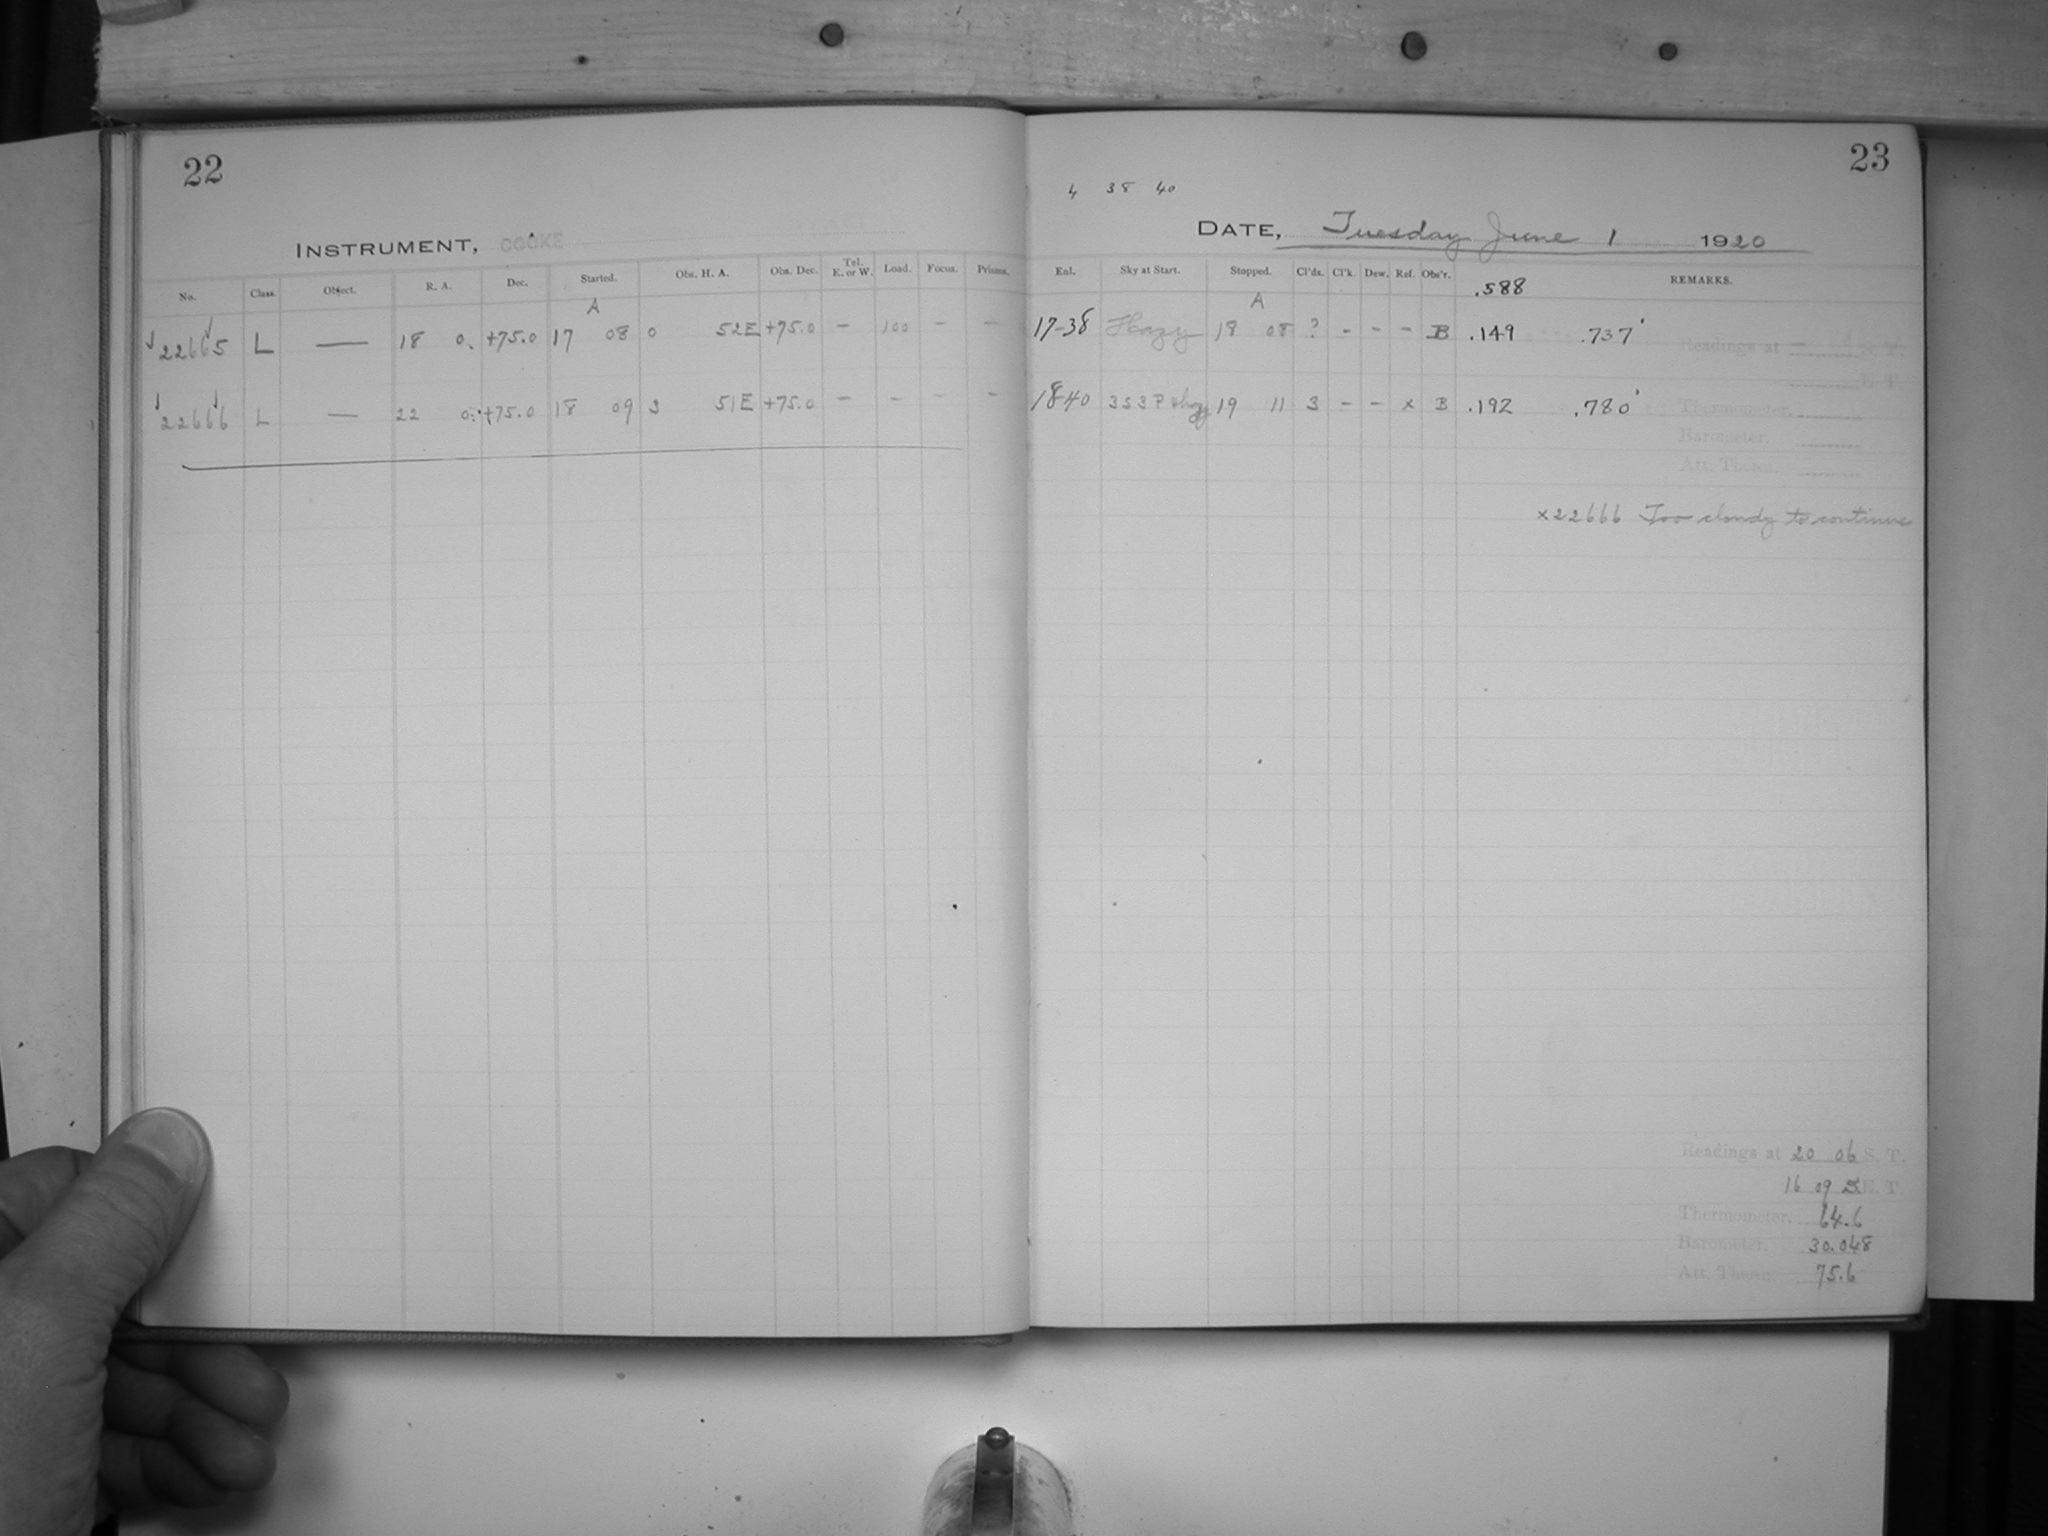 22
INSTRUMENT, COOKE
No. Class. Object. R. A. Dec. Started. Obs. H. A. Obs. Dec. Tel. E. or W. Load. Focus. Prisms.
A
22665 L — 18 0. +75.0 17 08 0 52E +75.0 - 100 - -
22666 L — 22 0. +75.0 18 09 3 51E +75.0 - - - -
23
4 38 40
DATE, Tuesday June 1 1920
Enl. Sky at Start. Stopped. Cl'ds. Cl'k. Dew. Ref. Obs'r. REMARKS.
.588
A
17-38 Hazy 18 08 ? - - - B .149 .737
Readings at S. T.
E. T.
18 40 3 S 3 P 19 11 3 - - x B .192 .780
Thermometer.
Barometer.
Att. Therm.
x22666 Too cloudy to continue
Readings at 20 06 S. T.
16 09 E. T.
Thermometer. 64.6
Barometer. 30.048
Att. Therm. 75.6